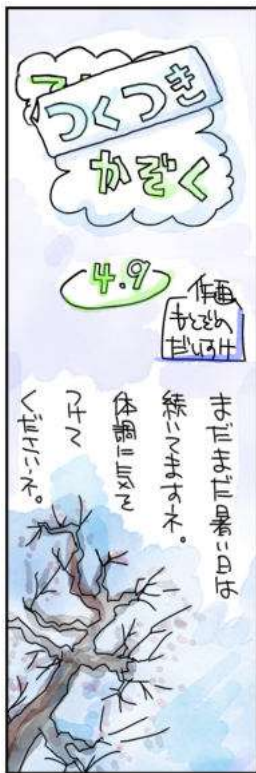 つくつき
かぞく
4.9
作画
もとぞの
だいすけ
まだまだ暑い日は
続いてますネ。
体調に気を
つけて
くださいネ。